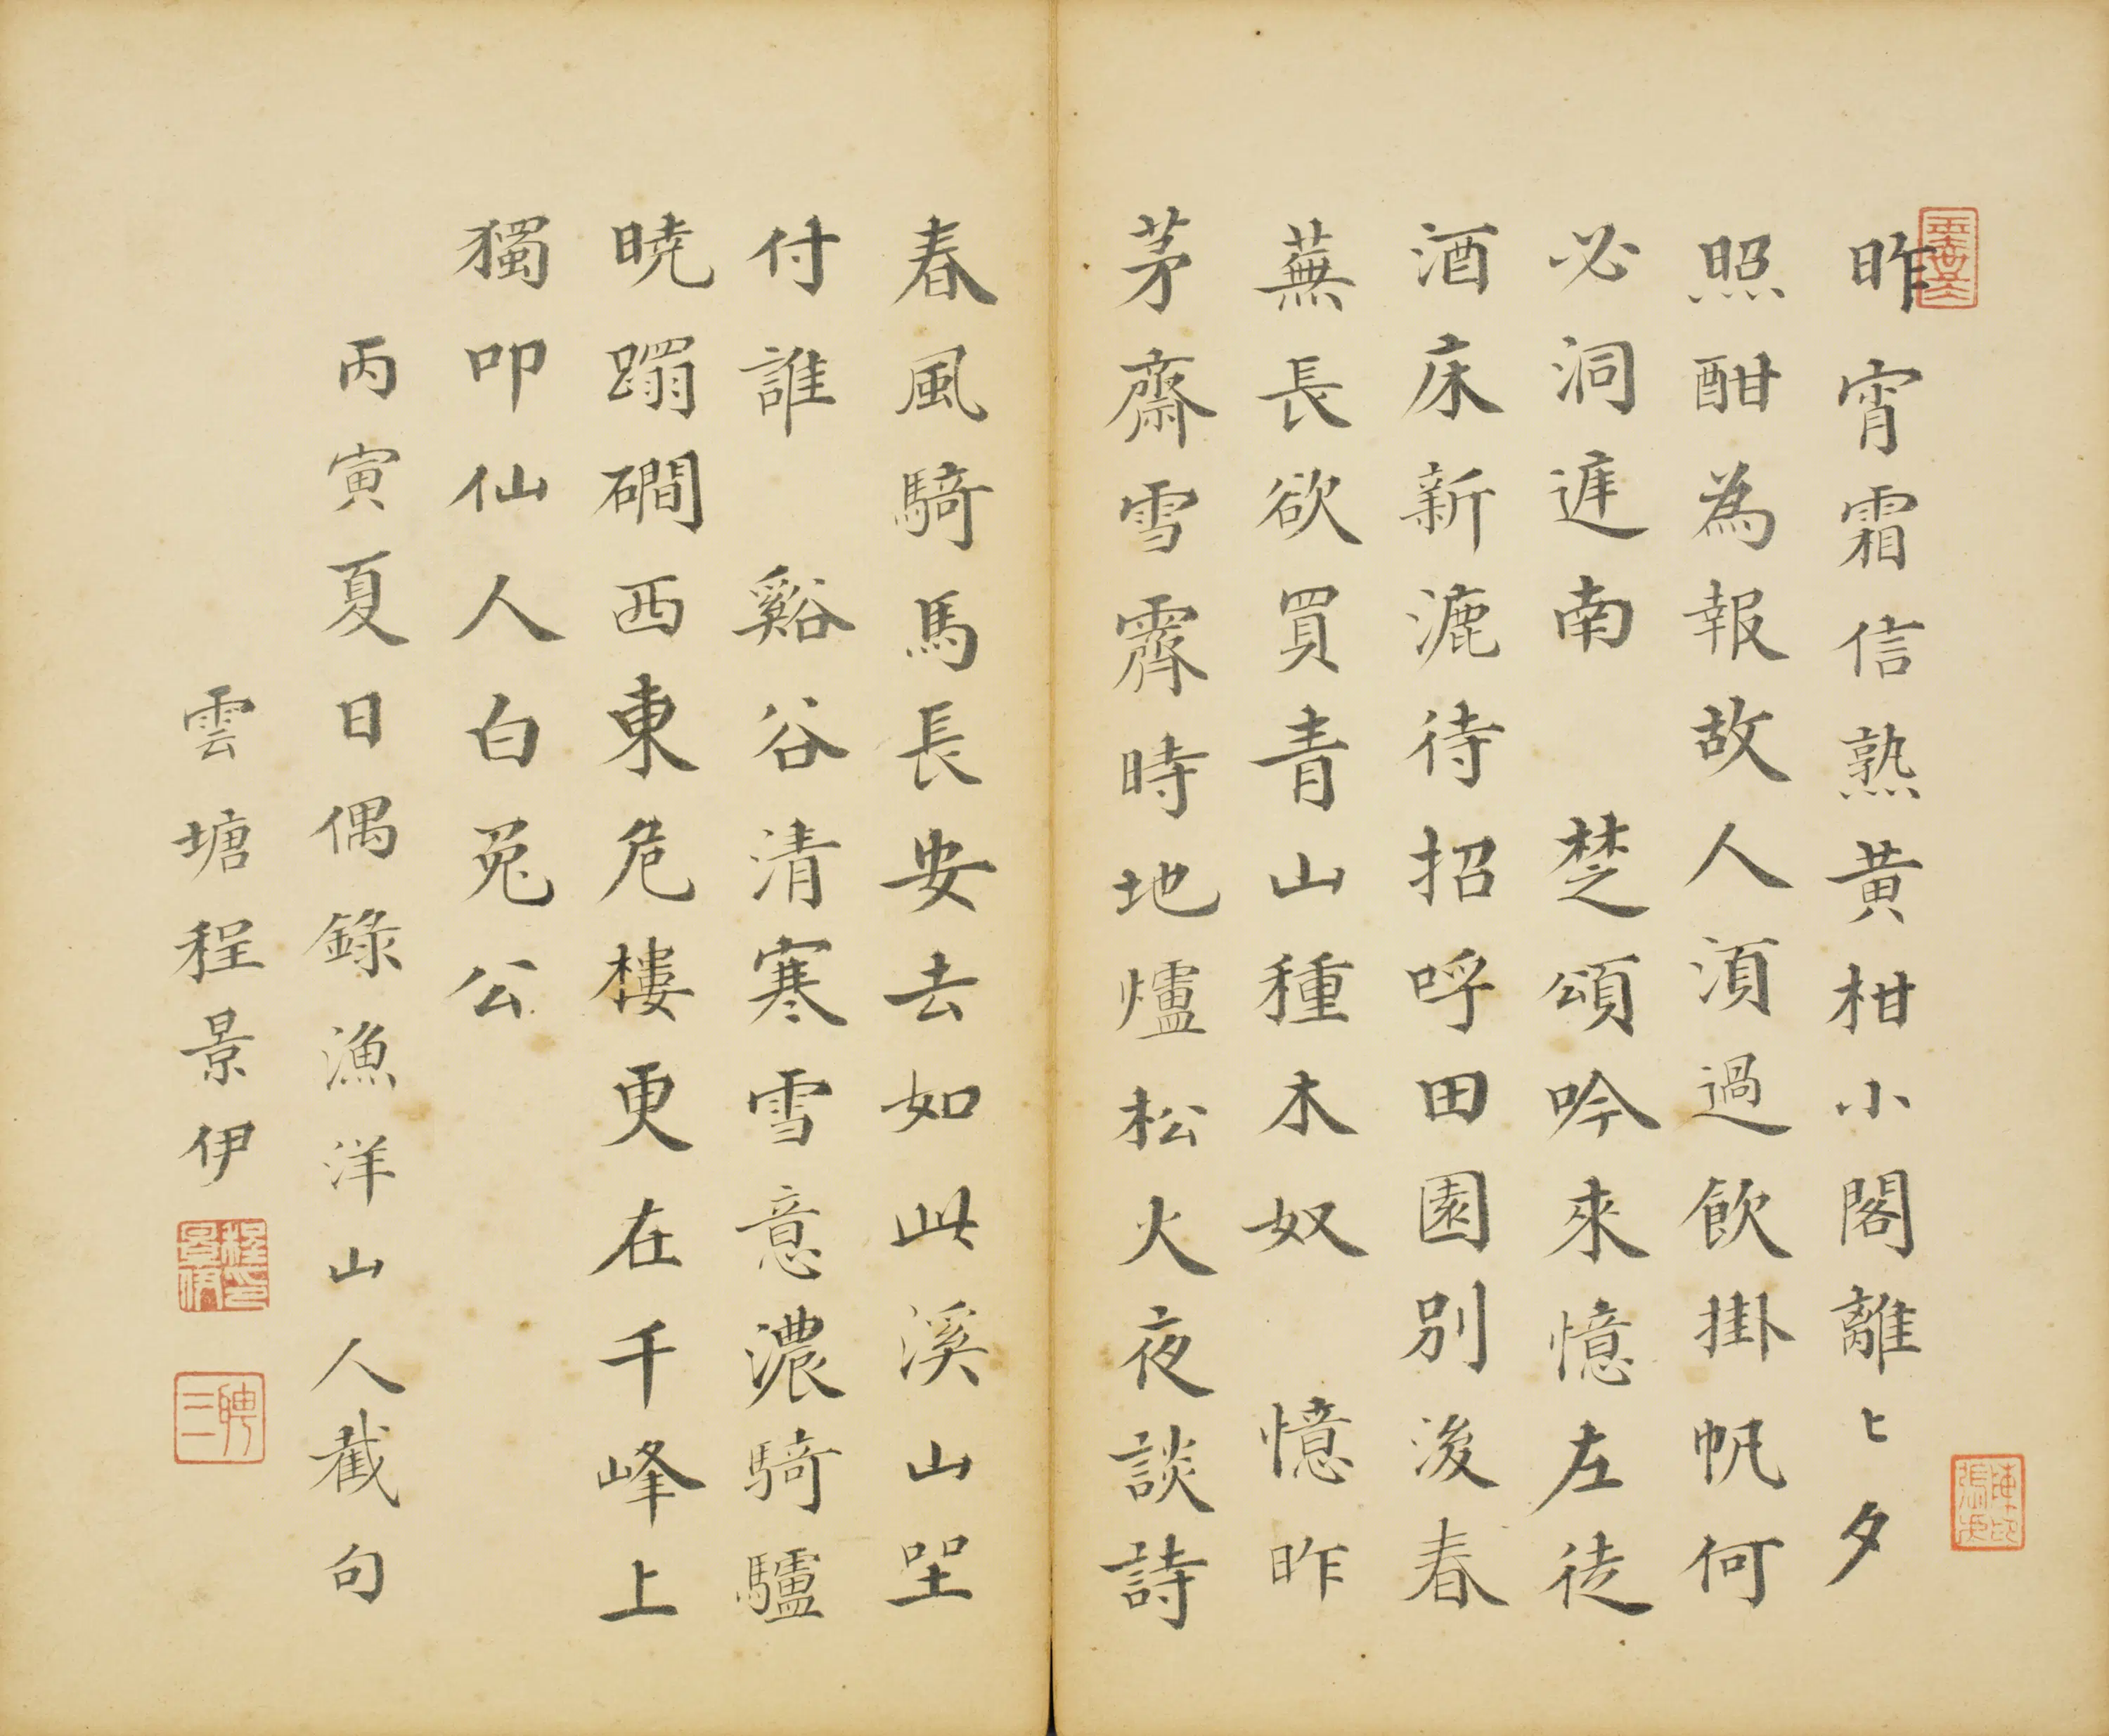 昨宵霜信熟黄柑小閣離〻夕
照酣為報故人湏過飲掛帆何
必洞庭南 楚頌吟來憶左徒
酒床新漉待招呼田園別後春
蕪長欲買青山種木奴 憶昨
茅齋雪霽時地爐松火夜談詩
春風騎馬長安去如此溪山坐
付誰 谿谷清寒雪意濃騎驢
曉蹋磵西東危樓更在千峰上
獨叩仙人白兔公
丙寅夏日偶錄漁洋山人截句
雲塘程景伊
程景伊印
聘三